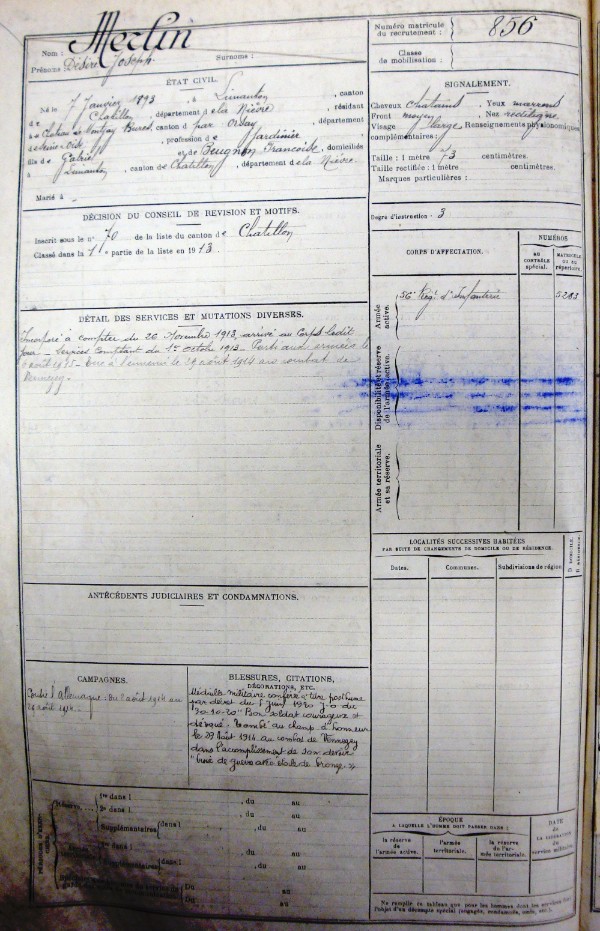 Nom : Merlin
Prénoms : Désiré Joseph Surnome :
ÉTAT CIVIL.
Né le 7 Janvier 1893, à Limanton, canton
de Chatillon, département de la Nièvre, résidant
à Chateau de Bures, canton de par Orsay, département
de Seine-et-Oise, profession de Jardinier
fils de Gabriel et de Beugnon Françoise, domiciliés
à Limanton, canton de Chatillon, département de la Nièvre.
Marié à -
DÉCISION DU CONSEIL DE REVISION ET MOTIFS.
Inscrit sous le n° 70 de la liste du canton de Chatillon
Classé dans la 1e partie de la liste en 1913.
DÉTAIL DES SERVICES ET MUTATIONS DIVERSES.
Incorporé à compter du 26 Novembre 1913, arrivé au Corps ledit
jour - Services Comptant du 1er octobre 1913 - Parti aux armées le
août - Tué à l'ennemi le 29 août 1914 au combat de
ANTÉCÉDENTS JUDICIAIRES ET CONDAMNATIONS.
CAMPAGNES.
Contre l'Allemagne : du 2 août 1914 au
29 août 1914.
BLESSURES, CITATIONS,
DÉCORATIONS, ETC.
Médaille militaire conférée à titre posthume
par décret du Juin 1920 J.O du
20-10-20 "Bon soldat courageux et
dévoué. Tombé au champ d'honneur
le 29 Août 1914 au combat de
dans l'accomplissement de son devoir
Croix de guerre avec étoile de bronze."
PÉRIODES D'EXERCICES
Réserve
1re dans l , du au
2e dans l , du au
Supplémentaires dans l , du au
dans l , du au
, du au
Du au
Du au
Numéro matricule
du recrutement : 856
Classe
de mobilisation :
SIGNALEMENT.
Cheveux chatains, Yeux marrons
Front moyen, Nez rectiligne
Visage large Renseignements physionomiques
complémentaires :
Taille : 1 mètre 73 centimètres.
Taille rectifiée : 1 mètre centimètres.
Marques particulières :
Degré d'instruction : 3
CORPS D'AFFECTATION.
NUMÉROS
AU CONTRÔLE spécial.
MATRICULE OU AU répertoire.
Armée active.
56e Régt d'Infanterie 5283
Disponibilité et réserve de l'armée active.
Armée territoriale et sa réserve.
LOCALITÉS SUCCESSIVES HABITÉES
PAR SUITE DE CHANGEMENTS DE DOMICILE OU DE RÉSIDENCE.
Dates. Communes. Subdivisions de région
D DOMICILE.
R RÉSIDENCE.
ÉPOQUE
À LAQUELLE L'HOMME DOIT PASSER DANS :
la réserve de l'armée active. l'armée territoriale. la réserve de l'armée territoriale.
DATE
DE LA LIBÉRATION
du service militaire.
Ne remplir ce tableau que pour les hommes dont les services font
l'objet d'un décompte spécial (engagés, condamnés, omis, etc.).